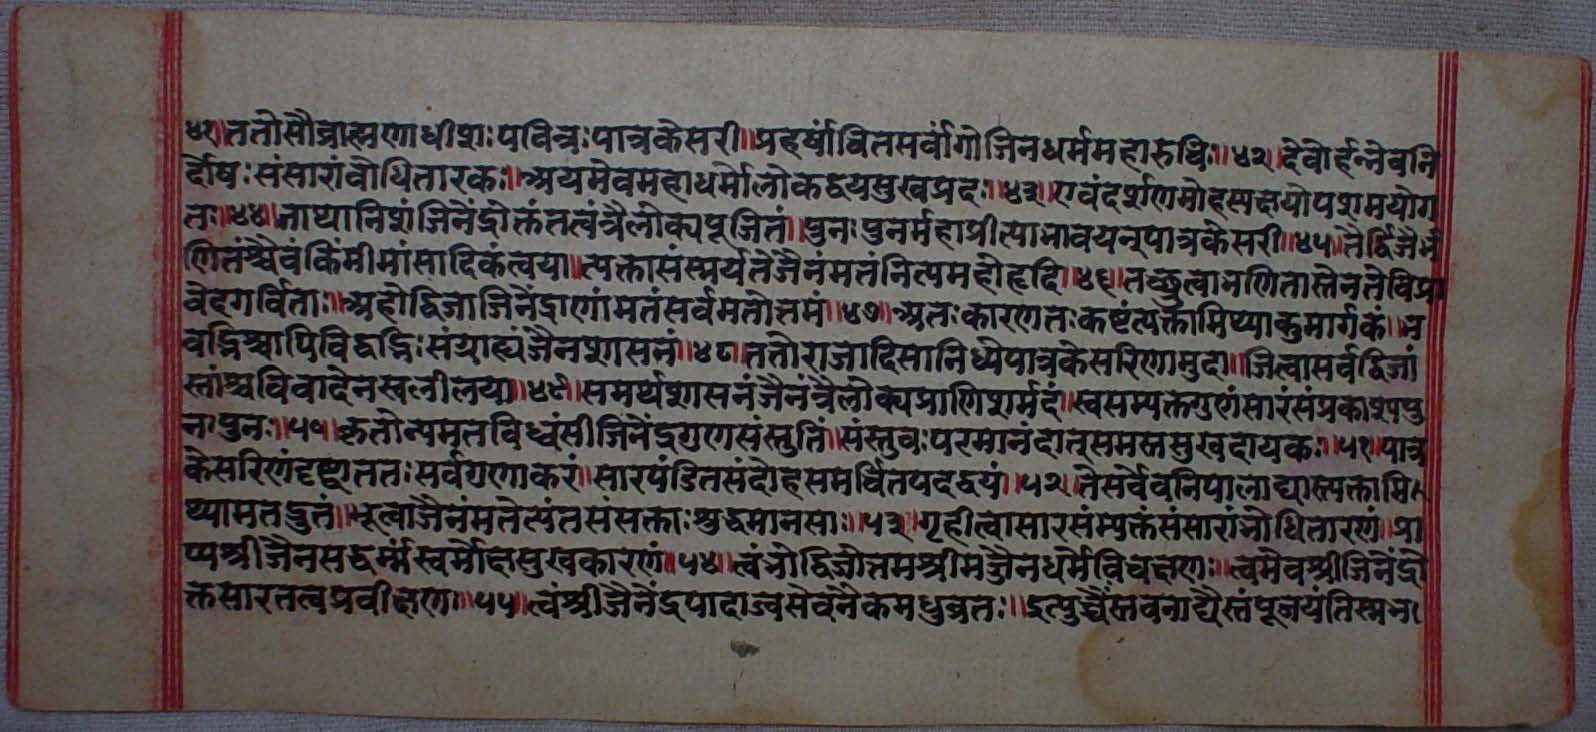 ४१॥ततोसौब्राह्मणाधीशःपवित्रःपात्रकेसरी॥प्रहर्षांचितसर्वांगोजिनधर्ममहारुचिः॥४२॥देवोर्हन्नेवनि
र्दोषःसंसारांवोधितारकः॥अयमेवमहाधर्मोलोकद्वयसुखप्रदः॥४३॥एवंदर्शणमोहस्यक्षयोपशमयोग
तः॥४४॥नाथानिशंजिनेंद्रोक्तंतत्वंत्रैलोक्यपूजितं॥पुनःपुनर्महाप्रीत्याभावयन्पात्रकेसरी॥४५॥तैर्द्विजैर्भ
णितंश्चैवंकिंमीमांसादिकंत्वया॥त्यक्तासंस्मर्यतेजैनंमतंनित्यमहोहृदि॥४६॥तच्छ्रुत्वाभणितास्तेनतेविप्रा
वेदगर्विताः॥अहोद्विजाजिनेंद्राणांमतंसर्वमतोत्तमं॥४७॥अतःकारणतःकष्टंत्यक्तामिथ्याकुमार्गकं॥भ
वद्भिश्चापिविद्वद्भिःसंग्राह्यंजैनशासनं॥४८॥ततोराजादिसानिध्येपात्रकेसरिणामुदा॥जित्वासर्वद्विजां
स्तांश्चविवादेनस्वलीलया॥४९॥समर्थशासनंजैनंत्रैलोक्यप्राणिशर्मदं॥स्वसम्यक्तगुणंसारंसंप्रकाश्यपु
नःपुनः॥५०॥कृतोन्यमतविध्वंसीजिनेंद्रगुणसंस्तुतिं॥संस्तुवःपरमानंदात्समस्तसुखदायकः॥५१॥पात्र
केसरिणंदृष्ट्वाततःसर्वगुणाकरं॥सारपंडितसंदोहसमर्चितपदद्वयं॥५२॥तेसर्वेवनिपालाद्यास्त्यक्तामि
थ्यामतद्रुतं॥भूत्वाजैनंमतेत्यंतसंसक्ताःशुद्धमानसाः॥५३॥गृहीत्वासारसंम्यक्तंसंसारांभोधितारणं॥प्रा
प्यश्रीजैनसद्धर्म्मंस्वर्मोक्षसुखकारणं॥५४॥त्वंभोद्विजोत्तमश्रीमज्जैनधर्मेविचक्षणः॥त्वमेवश्रीजिनेंद्रो
क्तसारतत्वप्रवीक्षणः॥५५॥त्वंश्रीजैनेंद्रपादाब्जसेवनैकमधुव्रतः॥इत्युच्चैस्तवनाद्यैस्तंपूजयंतिस्मभ